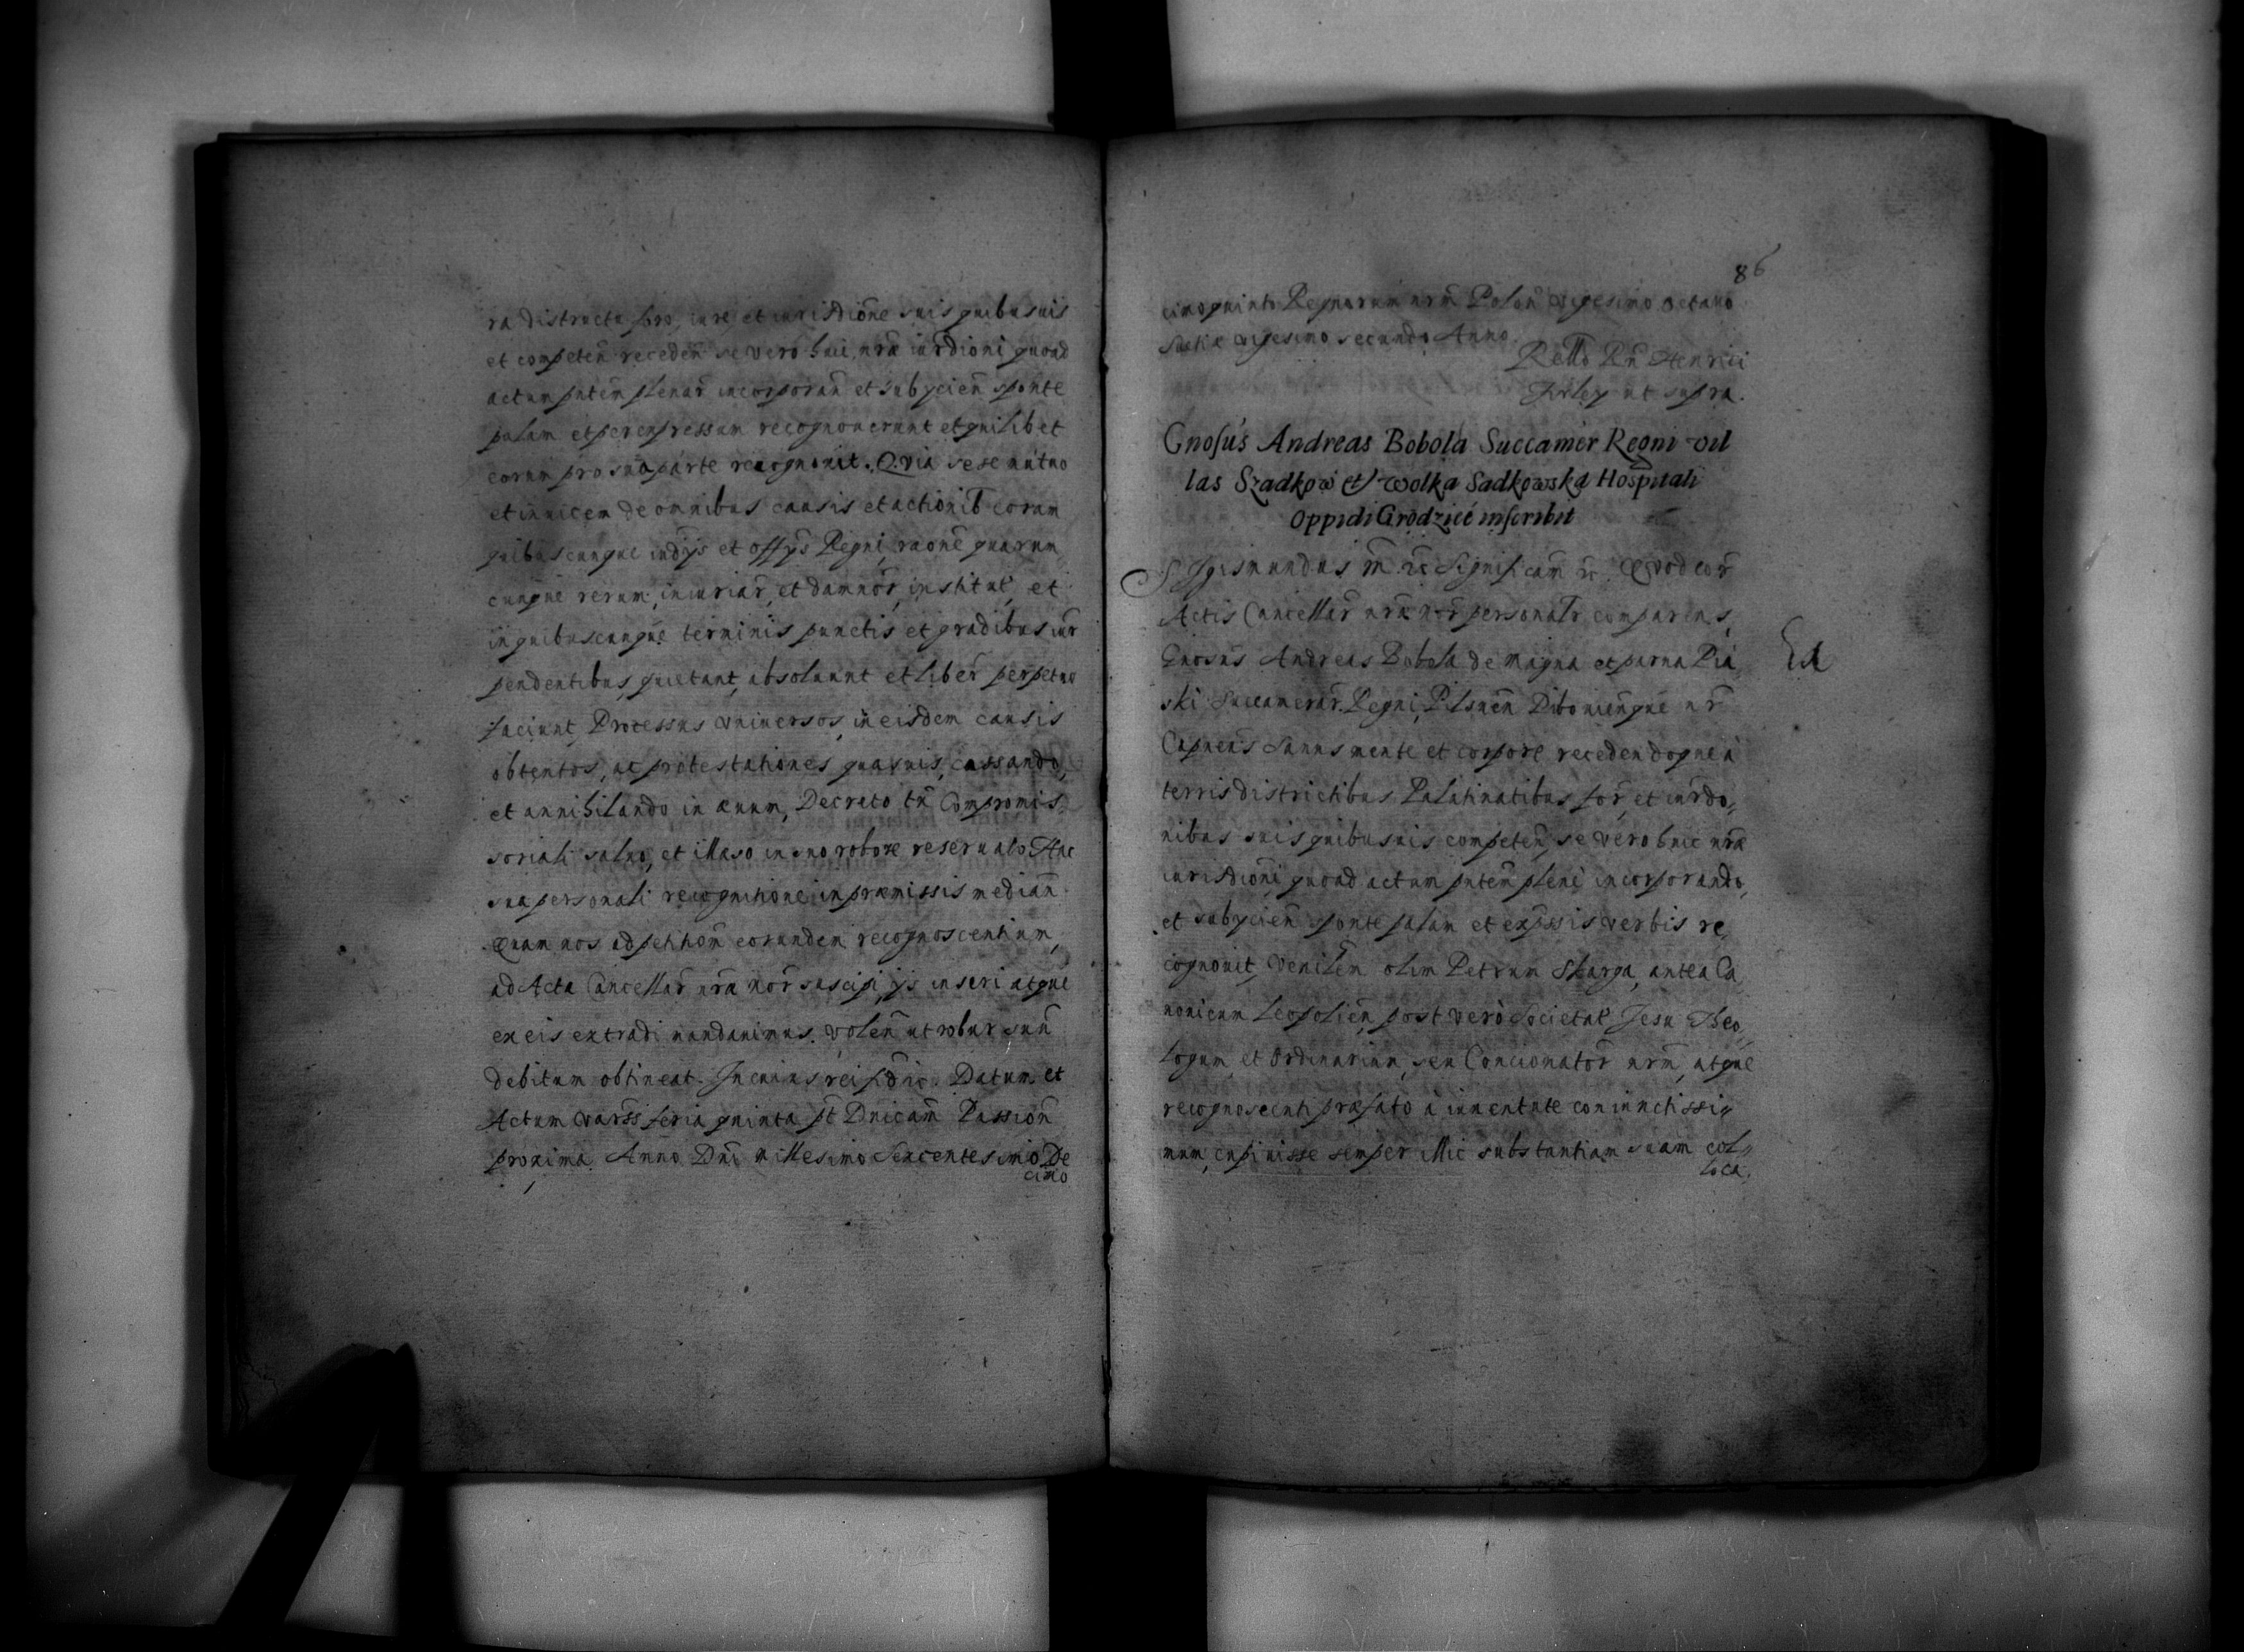 ra districtu foro, iure et iurisdiõne suis quibusuis
et competeñ recedeñ se vero huic nr̃æ iur̃dioni quoad
actum pñtem plenar̃ incorporañ et subycieñ sponte
palam et per expressum recognouerunt et quilibet
eorum pro sua parte recognouit. Quia sese mutuo
et inuicem de omnibus causis et actionib coram
quibuscunque iudys et offys Regni, raõne quarum
cunque rerum, iniuriar̃, et damnor̃, institut, et
in quibuscunque terminis punctis et gradibus iur̃
pendentibus, quietant, absoluunt et liber̃ perpetuo
faciunt, Processus vniuersos, in eisdem causis
obtentos, ac protestationes quasuis, cassando,
et annihilando in æuum, Decreto tñ Compromis
soriali saluo, et illæso in suo robore reseruato Hac
sua personali recognitione in præmissis mediañ
Quam nos ad petitioñ eorundem recognoscentium,
ad Acta Cancellar̃ nr̃a nor̃ suscipi, ys inseri atque
ex eis extradi mandauimus. voleñ ut robur suũ
debitum obtineat. In cuius rei fid ic. Datum et
Actum Varss feria quinta pt Dñicam Passioñ
proxima Anno Dñi Millesimo Sexcentesimo De
cimo
86
cimoquinto Regnorum nrm̃ Poloñ vigesimo octauo
Suetiæ vigesimo secundo Anno.
Rello Rñ Henrici
Firley ut supra.
Gnosus Andreas Bobola Succamer Regni vil
las Szadkow et wolka Sadkowska Hospitali
Oppidi Grodziec inscribit
Sigismundus m̃ ic Significam̃ ic. Quod cor̃
Actis Cancellar̃ nr̃a nor̃ personalr̃ comparens,
Gnosus Andreas Bobola de Magna et parua Pia
ski Succamerar̃ Regni, Pilsneñ Dibouieñque nr̃
Capneus sanus mente et corpore recedendoque à
terris districtibus Palatinatibus for̃, et iurdo,
nibus suis quibusuis competeñ, se vero huic nr̃æ
iurisdioñi quoad actum pñtem plene incorporando,
et subycieñ sponte palam et exp̃ssis verbis re,
cognouit, Venilem olim Petrum Skarga, antea Ca,
nonicum Leopolieñ, post verò Societat Jesu Theo,
logum, et Ordinarium, seu Concionator̃ nrm̃, atque
recognoscenti præfato à iuuentute coniunctissi,
mum, cupiuisse semper illic substantiam suam col,
loca,